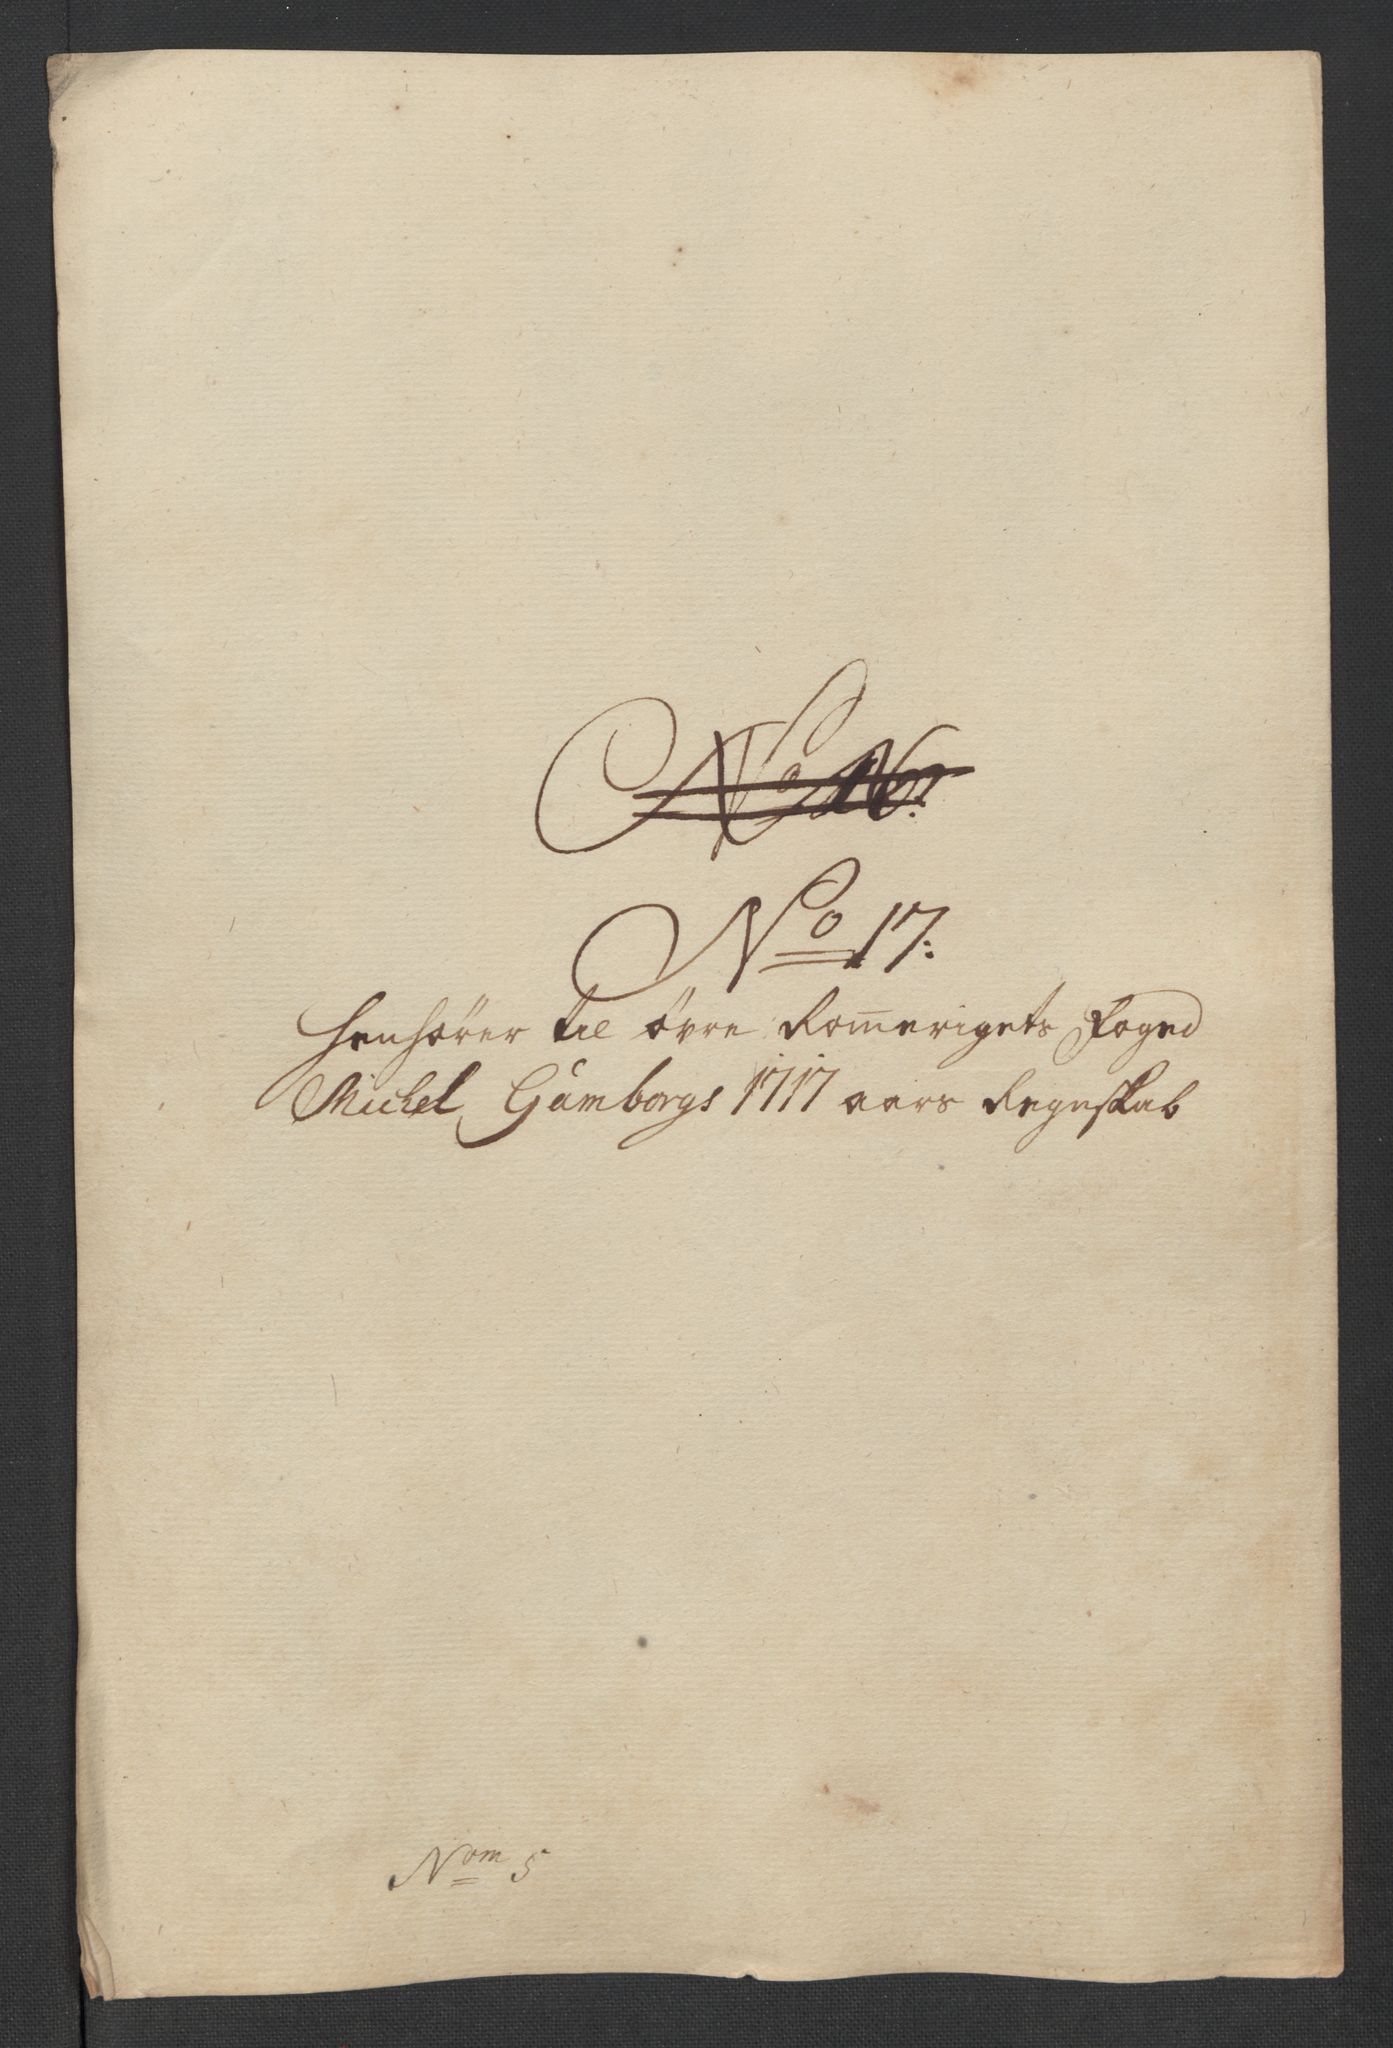 No 17:
Henhører til øvre Romerigets Foged
Michel Gamborgs 1717 aars Regnskab
Nom 5